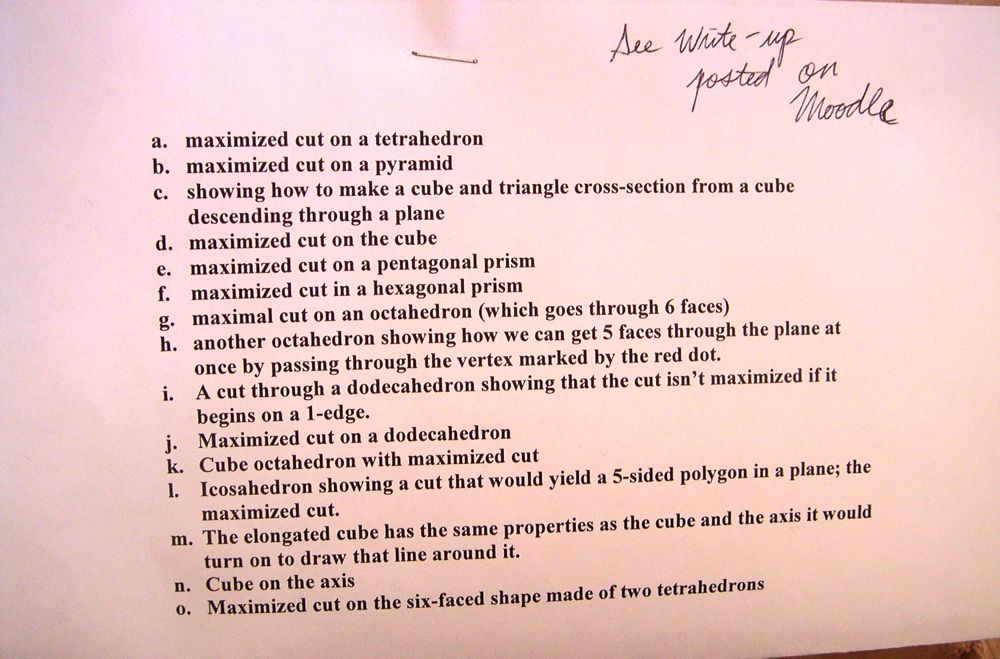 See Write-up
posted on
Moodle
a. maximized cut on a tetrahedron
b. maximized cut on a pyramid
c. showing how to make a cube and triangle cross-section from a cube
descending through a plane
d. maximized cut on the cube
e. maximized cut on a pentagonal prism
f. maximized cut in a hexagonal prism
g. maximal cut on an octahedron (which goes through 6 faces)
h. another octahedron showing how we can get 5 faces through the plane at
once by passing through the vertex marked by the red dot.
i. A cut through a dodecahedron showing that the cut isn't maximized if it
begins on a 1-edge.
j. Maximized cut on a dodecahedron
k. Cube octahedron with maximized cut
l. Icosahedron showing a cut that would yield a 5-sided polygon in a plane; the
maximized cut.
m. The elongated cube has the same properties as the cube and the axis it would
turn on to draw that line around it.
n. Cube on the axis
o. Maximized cut on the six-faced shape made of two tetrahedrons